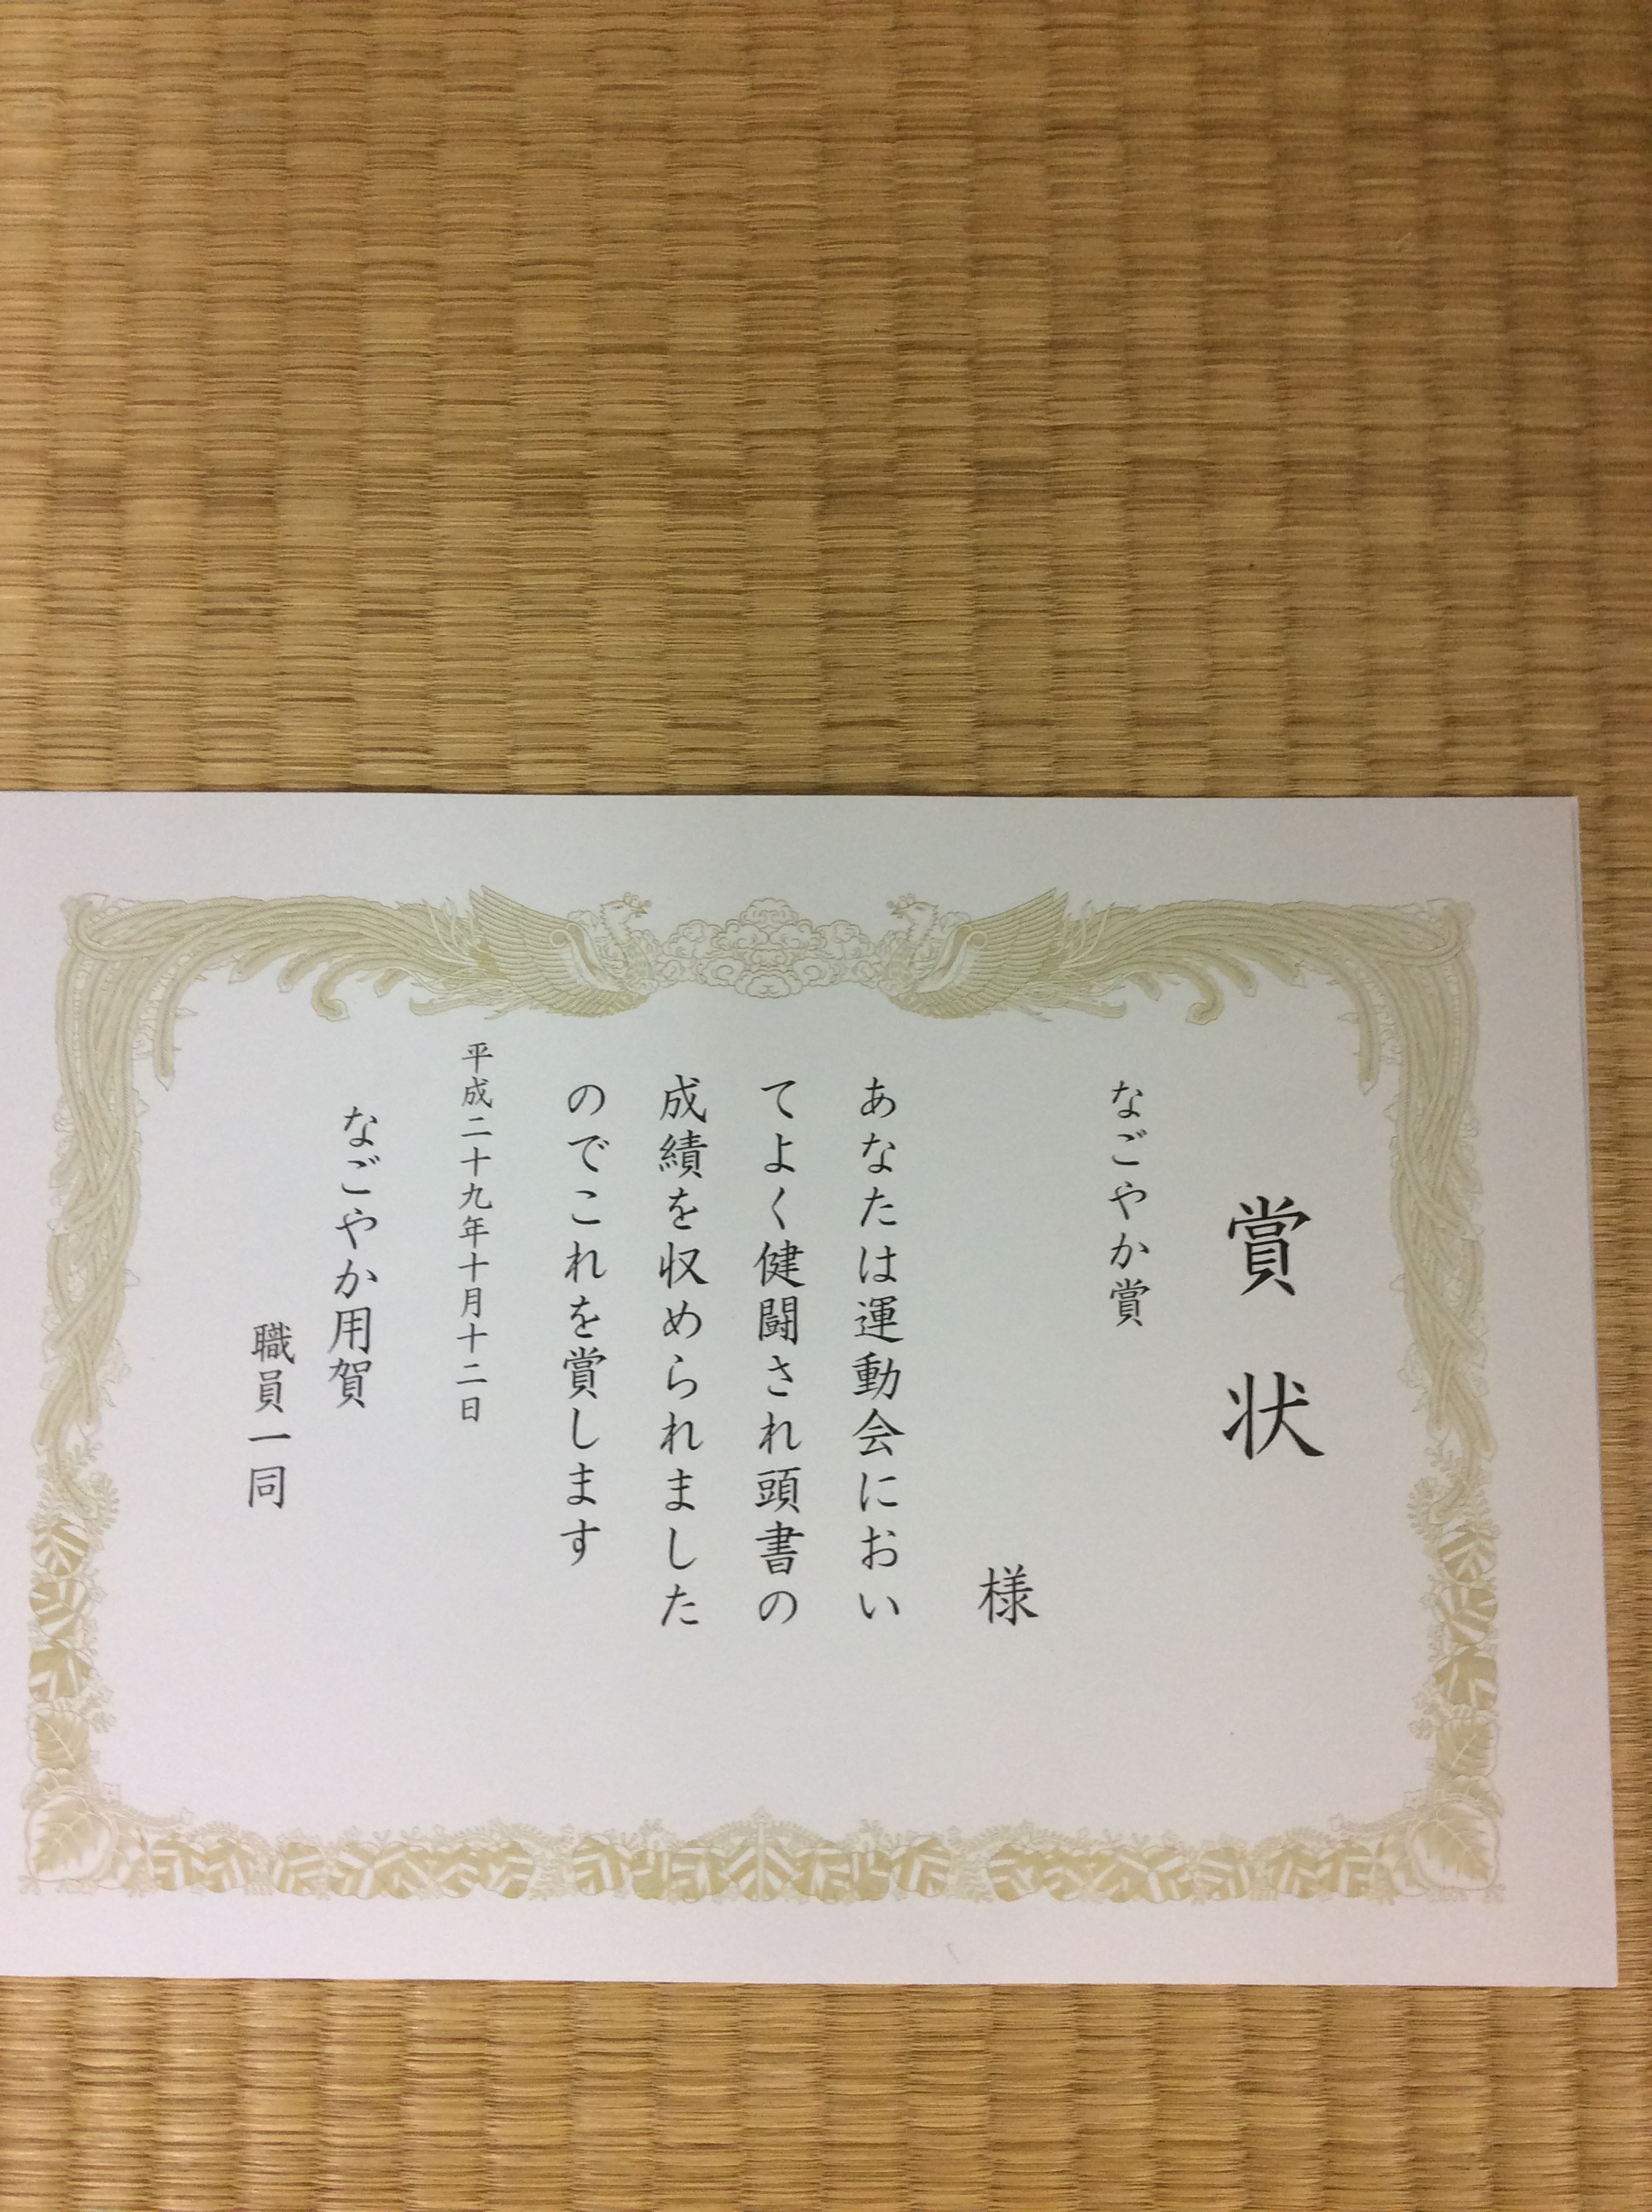 賞状
なごやか賞
様
あなたは運動会におい
てよく健闘され頭書の
成績を収められました
のでこれを賞します
平成二十九年十月十二日
なごやか用賀
職員一同